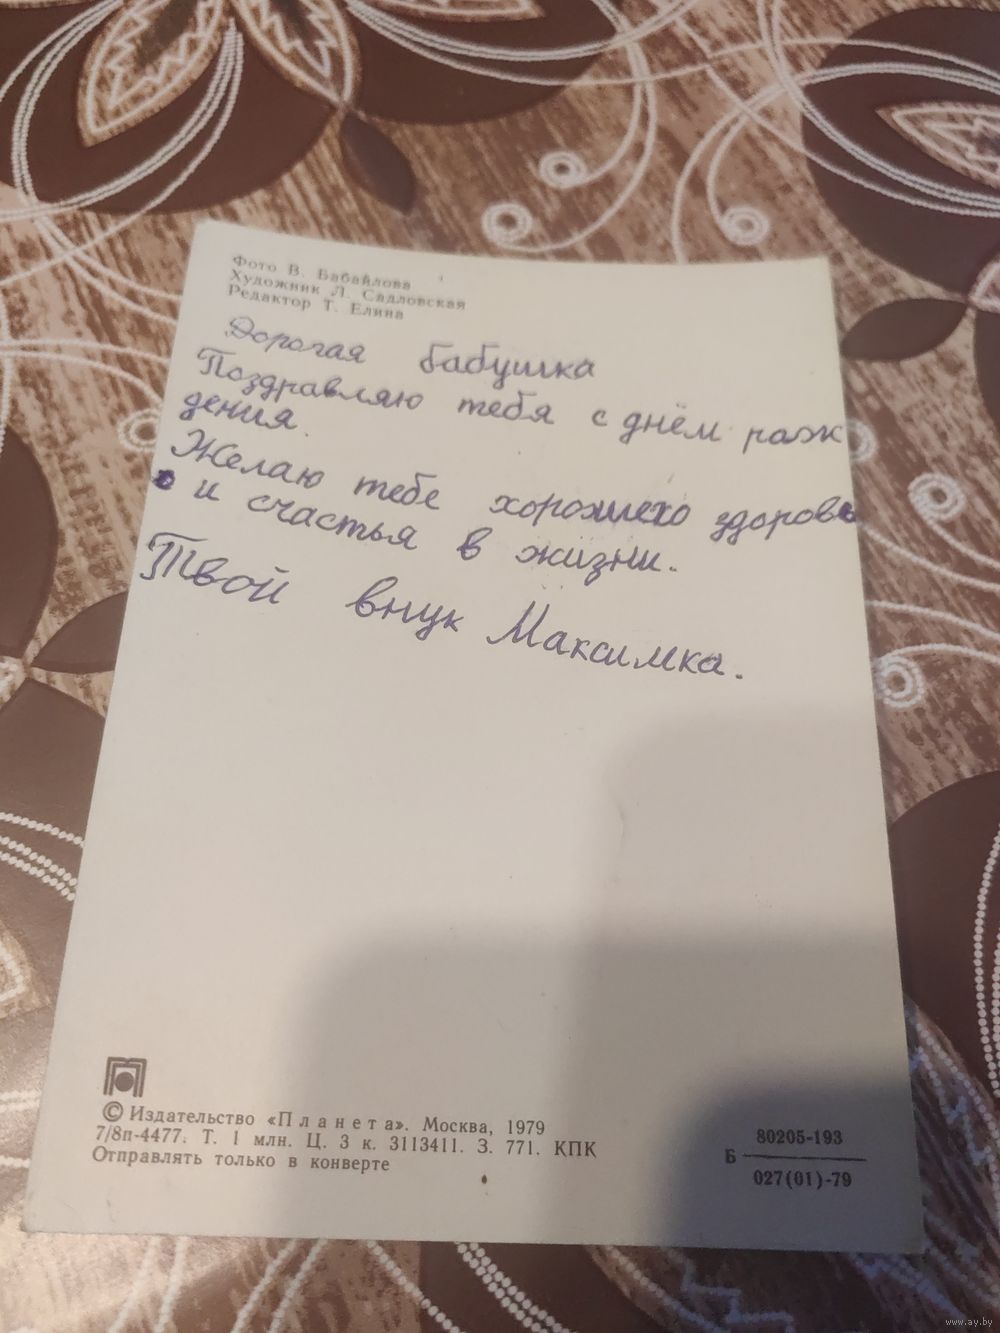 Фото В. Бабайлова
Художник Л. Садловская
Редактор Т. Елина
Дорогая бабушка
Поздравляю тебя с днём раж
дения.
Желаю тебе хорошего здоровь
и счастья в жизни.
Твой внук Максимка.
© Издательство «Планета». Москва, 1979
7/8п-4477. Т. 1 млн. Ц. 3 к. 3113411. З. 771. КПК
Отправлять только в конверте
Б 80205-193
027(01)-79
www.ay.by